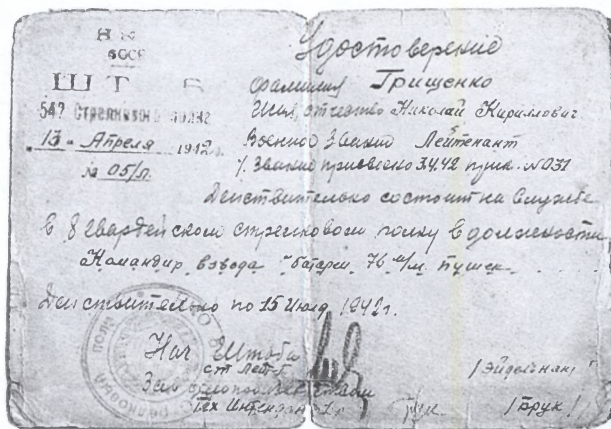 Н К
СССР
ШТ Б
547 Стрелкового полка
13 " Апреля 1942 г.
№ 05/п
Удостоверение
фамилия Грищенко
Имя, отчество Николай Кириллович
Военное звание Лейтенант
/. Звание присвоено 3.4.42 №031
Действительно состоит на службе
в 8 гвардейском стрелковом полку в должности
Командир взвода батареи 76 м/м пушек.
Действительно по 15 Июля 1942г.
Нач Штаба
ст Лейт-т /Эйдельнант/
Зам
Тех Интендант 1 р /Брук/